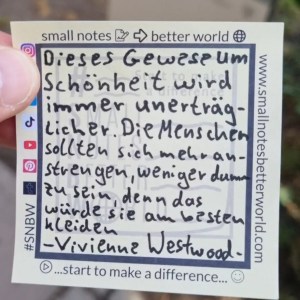 small notes → better world
Dieses Gewese um
Schönheit wird
immer unerträg-
licher. Die Menschen
sollten sich mehr an-
strengen, weniger dumm
zu sein, denn das
würde sie am besten
kleiden
-Vivienne Westwood-
...start to make a difference...
#SNBW
www.smallnotesbetterworld.com